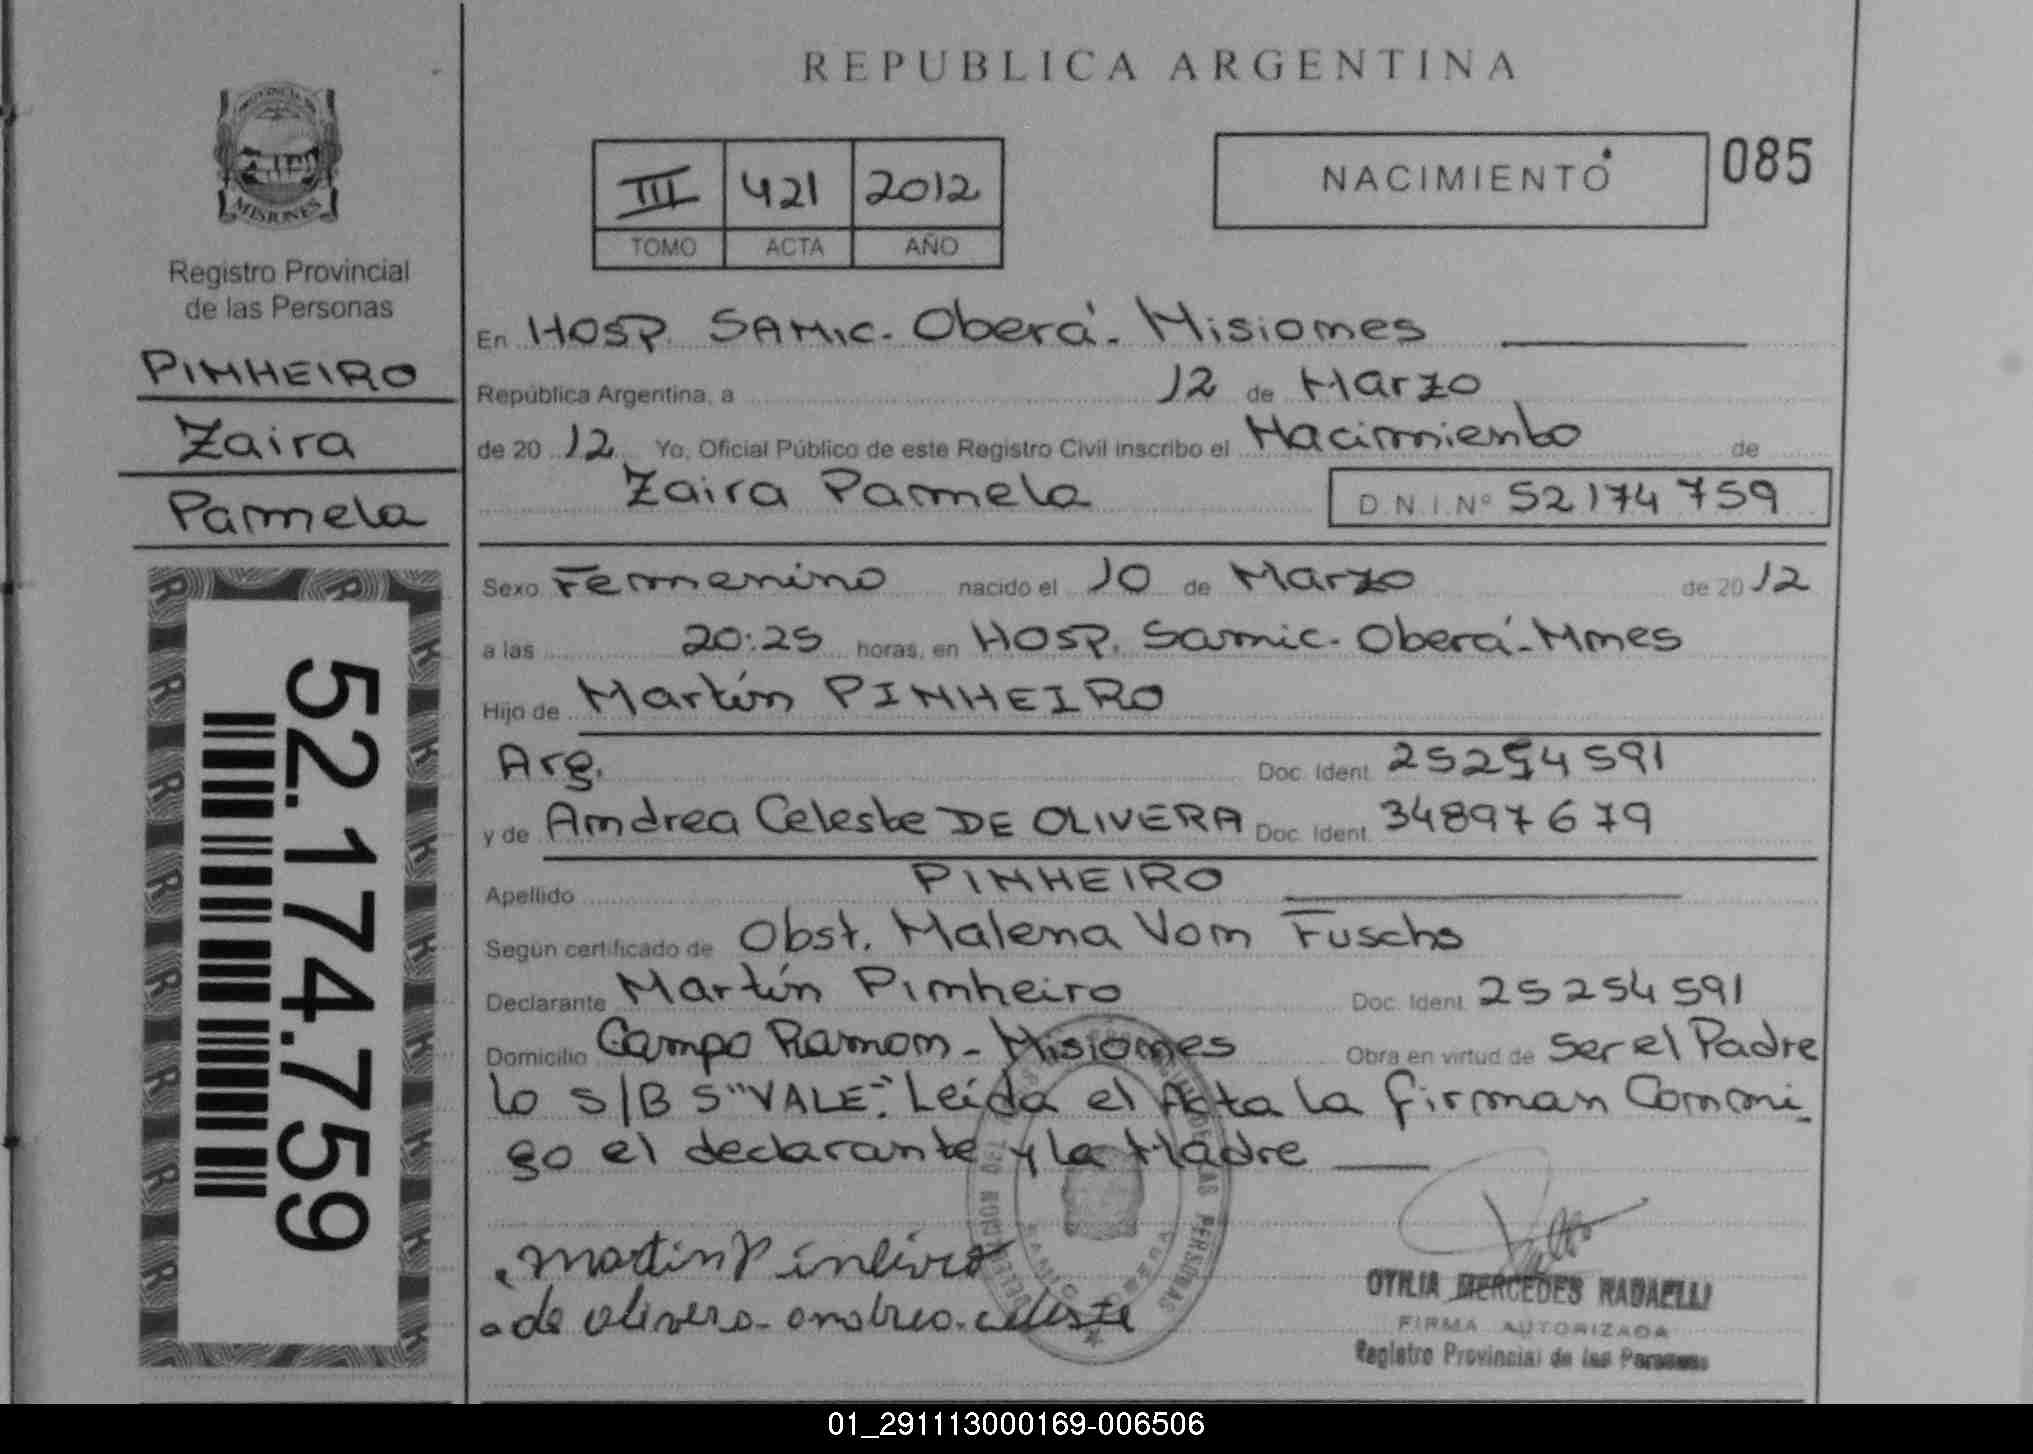 REPUBLICA ARGENTINA
PROVINCIA DE
MISIONES
Registro Provincial
de las Personas
PINHEIRO
Zaira
Pamela
52.174.759
III 421 2012
TOMO ACTA AÑO
NACIMIENTO 085
En HOSP. SAMIC. Oberá. Misiones
República Argentina, a 12 de Marzo
de 20 12 Yo, Oficial Público de este Registro Civil inscribo el Nacimiento de
Zaira Pamela D.N.I.Nº 52174759
Sexo Femenino nacido el 10 de Marzo de 20 12
a las 20:25 horas, en HOSP. Samic. Oberá-Mnes
Hijo de Martín PINHEIRO
Arg. Doc. Ident. 25254591
y de Andrea Celeste DE OLIVERA Doc. Ident. 34897679
Apellido PINHEIRO
Según certificado de Obst. Malena Von Fuschs
Declarante Martín Pinheiro Doc. Ident. 25254591
Domicilio Campo Ramon - Misiones Obra en virtud de ser el Padre
lo s/B S"VALE". Leída el Acta la firman Conmi-
go el declarante y la Madre
martin Pinheiro
de olivera - andrea - celeste
OTILIA MERCEDES RADAELLI
FIRMA AUTORIZADA
Registro Provincial de las Personas
01_291113000169-006506